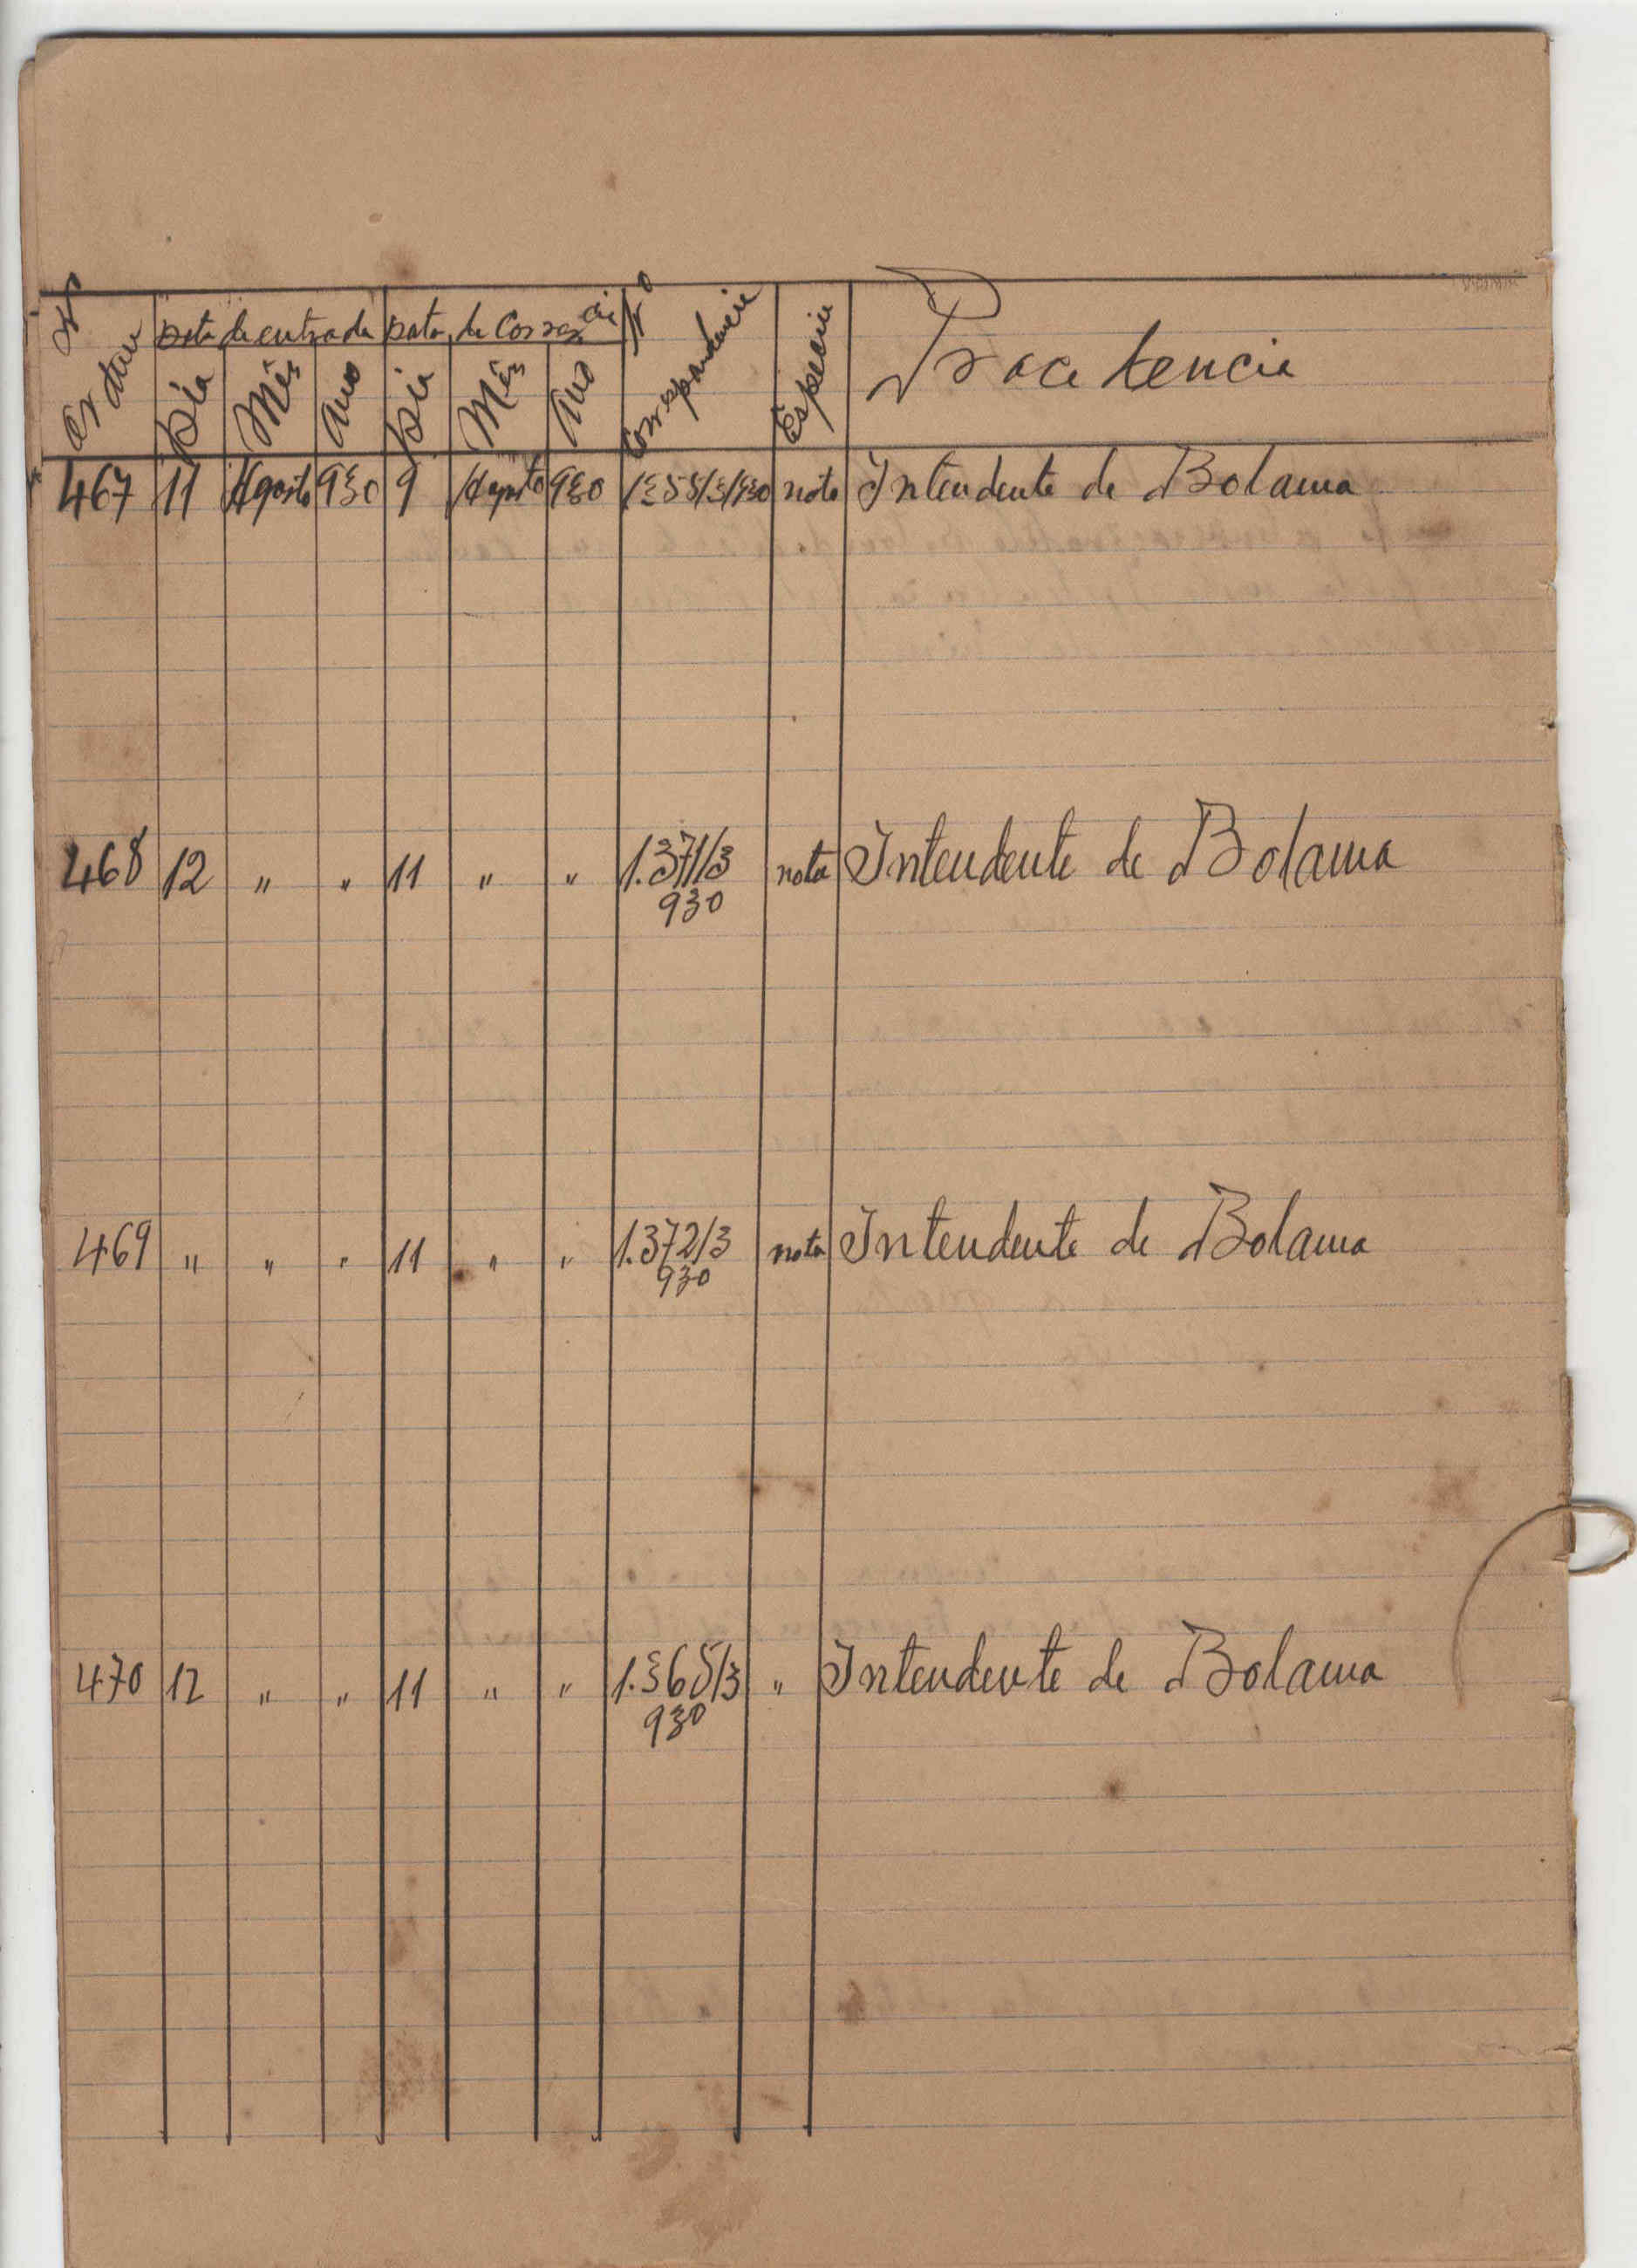 Nº Ordem Data de entrada Data de Corresp.cia Nº Correspondencia Especie Procedencia
Dia Mês Ano Dia Mês Ano
467 11 Agosto 930 9 Agosto 930 1355/3/930 nota Intendente de Bolama
468 12 " " 11 " " 1.371/3 nota Intendente de Bolama
930
469 " " " 11 " " 1.372/3 nota Intendente de Bolama
930
470 12 " " 11 " " 1.365/3 " Intendente de Bolama
930